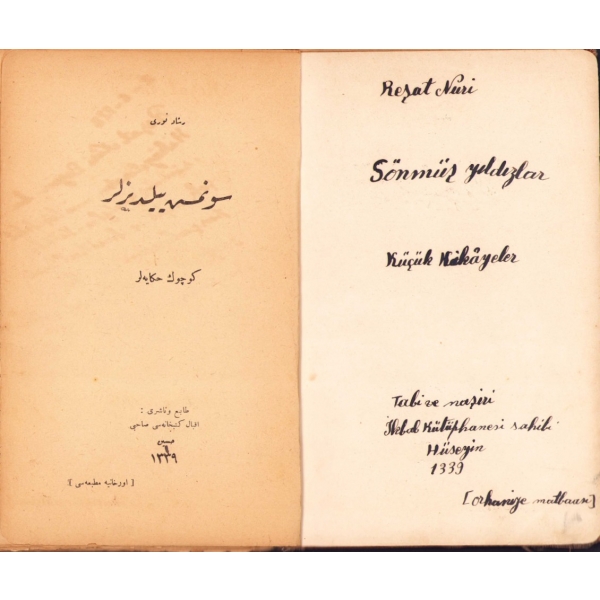 رشاد نوری
سونمش ییلدیزلر
كوچوك حكایه‌لر
طابع و ناشری :
اقبال كتبخانه‌سی صاحبی
حسین
١٣٣٩
[ اورخانیه مطبعه‌سی ]
Reşat Nuri
Sönmüş yıldızlar
Küçük Hikâyeler
Tabi ve naşiri
İkbal Kütüphanesi sahibi
Hüseyin
1339
[orhaniye matbaası]